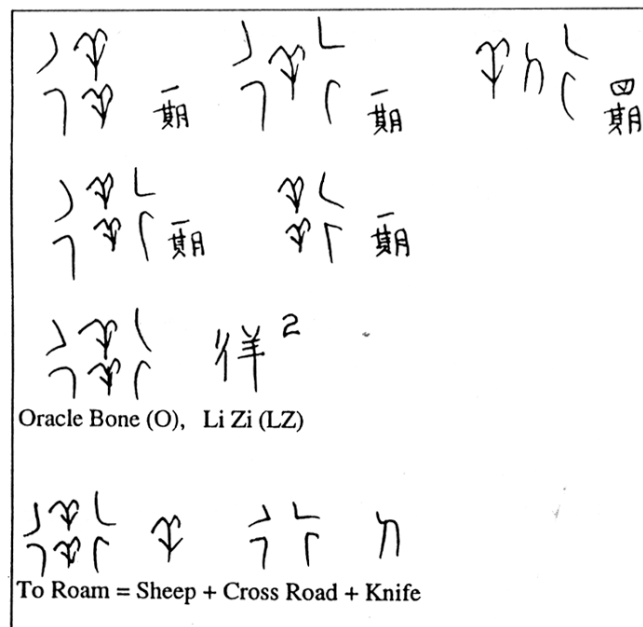 一期 一期 四期
一期 一期
徉 2
Oracle Bone (O), Li Zi (LZ)
To Roam = Sheep + Cross Road + Knife